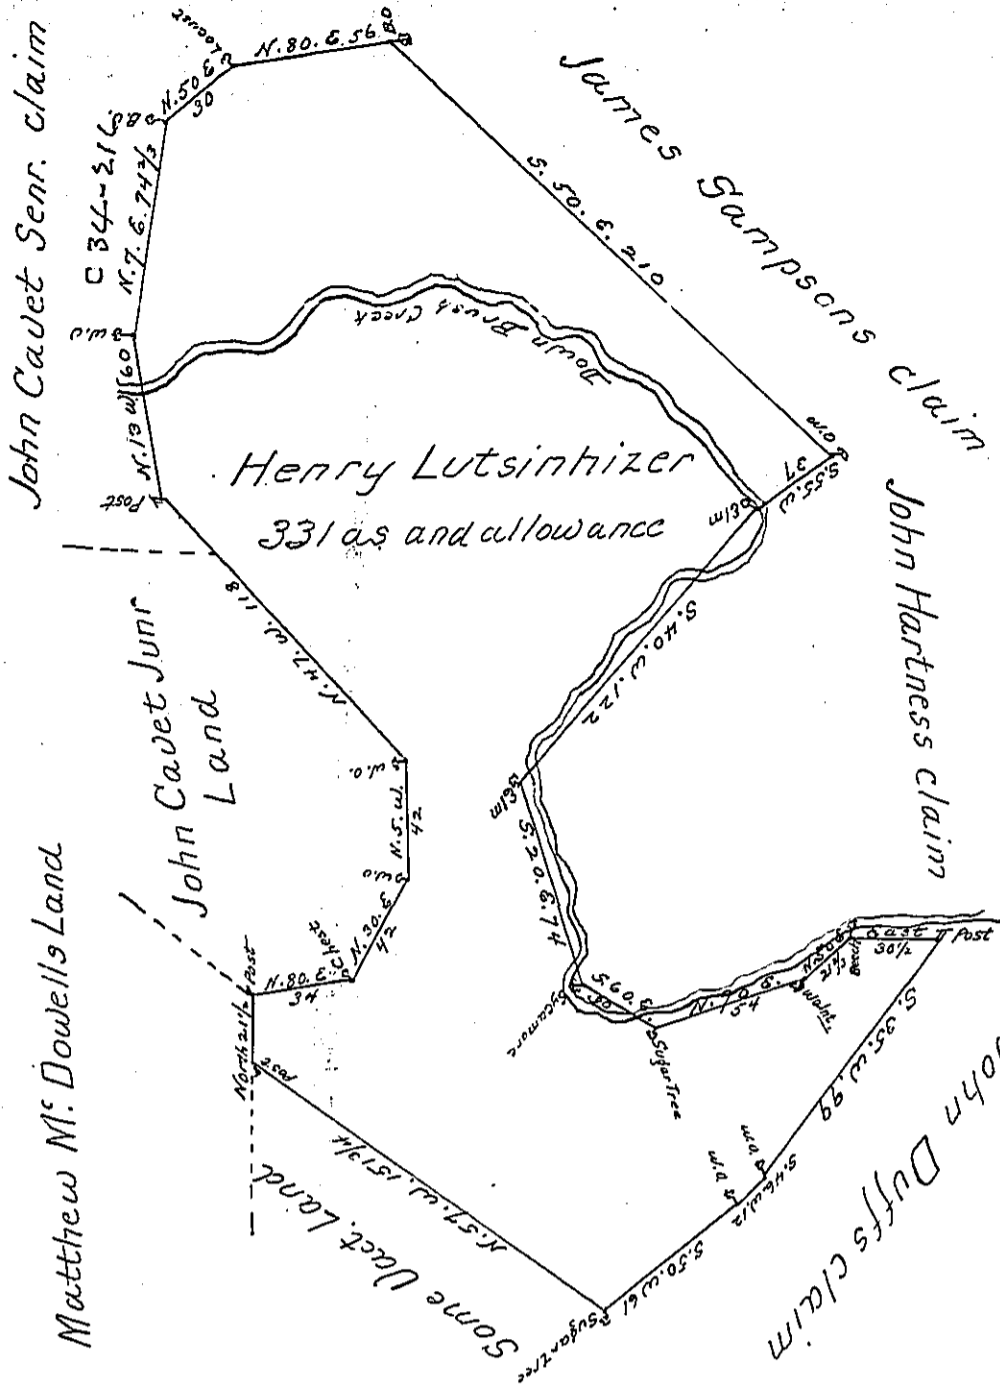 John Cavet Senr. claim
C 34-216
James Sampsons claim
John Hartness claim
John Duffs claim
Some Vact. Land
Matthew Mc. Dowells Land
John Cavet Junr
Land
Henry Lutsinhizer
331 as and allowance
Down Brush Creek
Locust
N. 80. E. 56
B.O
S. 50. E. 210
W.O
S. 55. W
37
Elm
S. 40. W. 122
Elm
S. 20. E. 74
Sycamore
Sugar Tree
54
Walnut
Beech
East
30 1/2
Post
S. 35. W. 99
W.O.
S. 46. W. 12
W.O.
S. 50. W 61
Sugar tree
N. 57. W. 151 3/4
Post
North 21 1/2
Post
N. 80. E.
34
Chest
N. 30. E
42
W.O
N. 5. W.
42
W.O.
N. 47. W. 118
Post
N. 13 W
60
W.O
N. 7. E. 74 2/3
B.O
N. 50 E
30